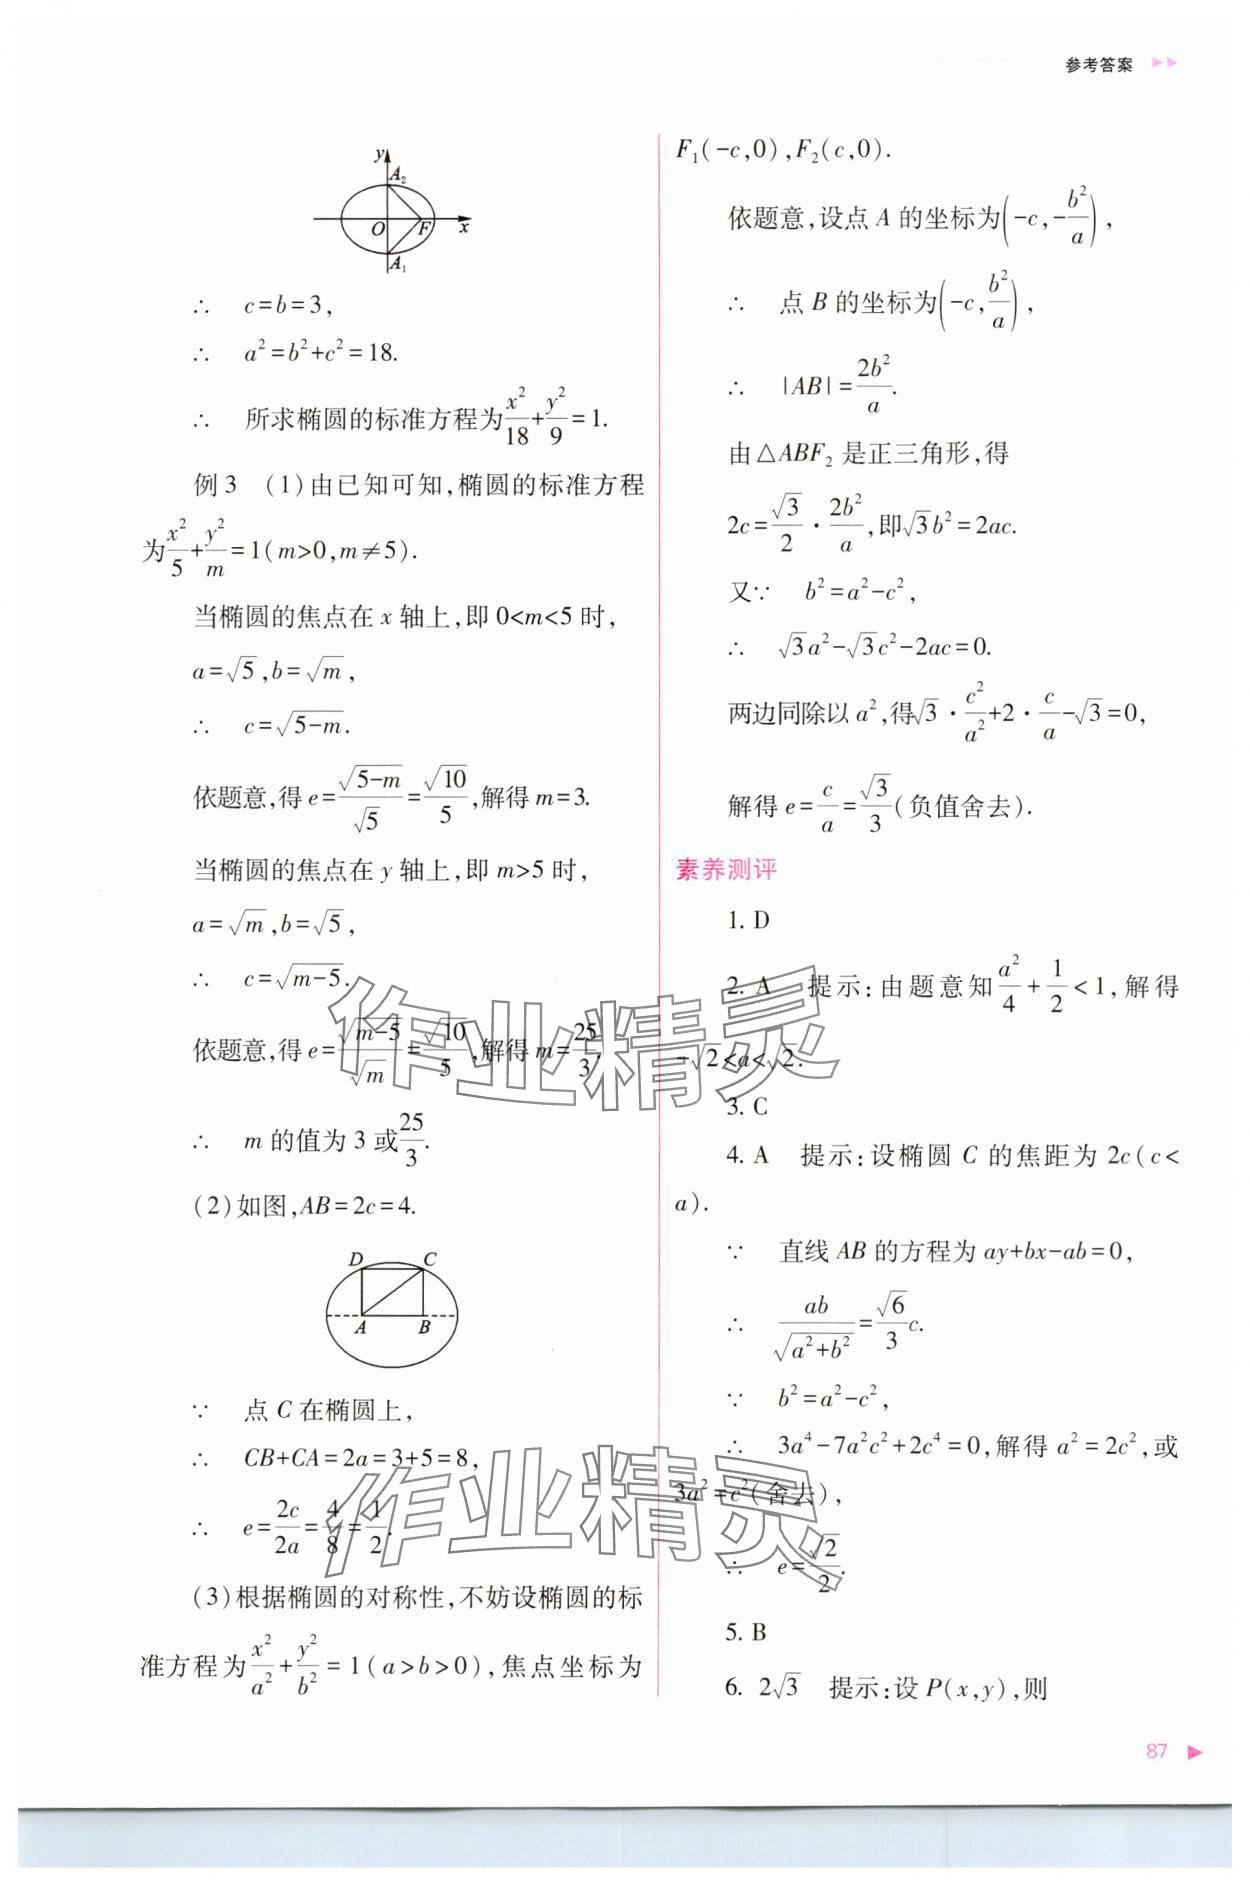 参考答案
y
A₂
O
F
x
A₁
∴ c=b=3,
∴ a²=b²+c²=18.
∴ 所求椭圆的标准方程为x²/18+y²/9=1.
例3 (1)由已知可知,椭圆的标准方程
为x²/5+y²/m=1(m>0,m≠5).
当椭圆的焦点在x轴上,即0<m<5时,
a=√5,b=√m,
∴ c=√(5-m).
依题意,得e=√(5-m)/√5=√10/5,解得m=3.
当椭圆的焦点在y轴上,即m>5时,
a=√m,b=√5,
∴ c=√(m-5).
依题意,得e=√(m-5)/√m=√10/5,解得m=25/3.
∴ m的值为3或25/3.
(2)如图,AB=2c=4.
D
C
A
B
∵ 点C在椭圆上,
∴ CB+CA=2a=3+5=8,
∴ e=2c/2a=4/8=1/2.
(3)根据椭圆的对称性,不妨设椭圆的标
准方程为x²/a²+y²/b²=1(a>b>0),焦点坐标为
F₁(-c,0),F₂(c,0).
依题意,设点A的坐标为(-c,-b²/a),
∴ 点B的坐标为(-c,b²/a),
∴ |AB|=2b²/a.
由△ABF₂是正三角形,得
2c=√3/2·2b²/a,即√3b²=2ac.
又∵ b²=a²-c²,
∴ √3a²-√3c²-2ac=0.
两边同除以a²,得√3·c²/a²+2·c/a-√3=0,
解得e=c/a=√3/3(负值舍去).
素养测评
1. D
2. A 提示:由题意知a²/4+1/2<1,解得
-√2<a<√2.
3. C
4. A 提示:设椭圆C的焦距为2c(c<
a).
∵ 直线AB的方程为ay+bx-ab=0,
∴ ab/√(a²+b²)=√6/3c.
∵ b²=a²-c²,
∴ 3a⁴-7a²c²+2c⁴=0,解得a²=2c²,或
3a²=c²(舍去),
∴ e=√2/2.
5. B
6. 2√3 提示:设P(x,y),则
87
作业精灵
作业精灵